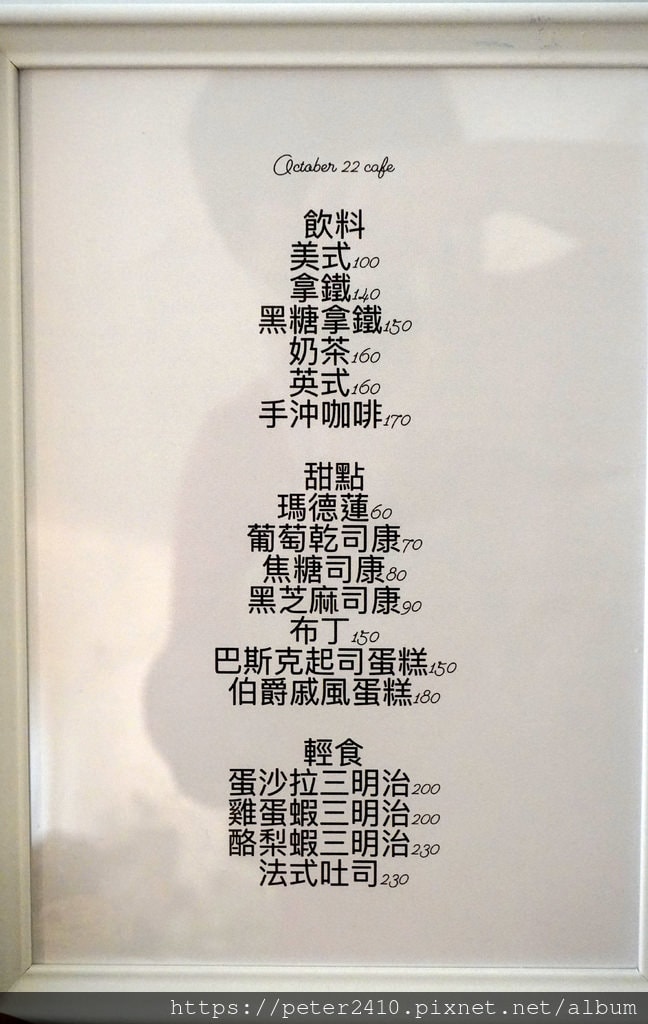 October 22 cafe
飲料
美式100
拿鐵140
黑糖拿鐵150
奶茶160
英式160
手沖咖啡170
甜點
瑪德蓮60
葡萄乾司康70
焦糖司康80
黑芝麻司康90
布丁150
巴斯克起司蛋糕150
伯爵戚風蛋糕180
輕食
蛋沙拉三明治200
雞蛋蝦三明治200
酪梨蝦三明治230
法式吐司230
https://peter2410.pixnet.net/album